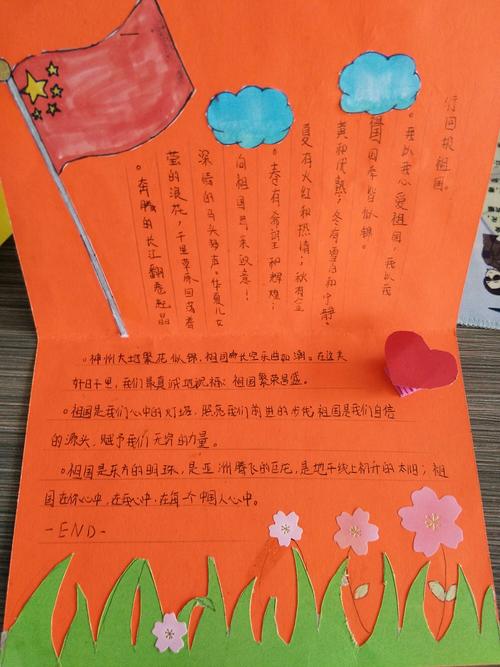 。奔腾的长江翻卷起晶
莹的浪花,千里草原回荡着
深情的马头琴声。华夏儿女
向祖国母亲致意!
。春有希望和辉煌;
夏有火红和热情;秋有金
黄和成熟;冬有雪白和宁静。
祖国四季皆似锦。
。我以我心爱祖国,我以我
行回报祖国。
。神州大地繁花似锦,祖国的长空乐曲如潮。在这美
好日子里,我们最真诚地祝福:祖国繁荣昌盛。
。祖国是我们心中的灯塔,照亮我们前进的步伐;祖国是我们自信
的源头,赋予我们无穷的力量。
。祖国是东方的明珠,是亚洲腾飞的巨龙,是地平线上初升的太阳;祖
国在你心中,在我心中,在每一个中国人心中。
-END-